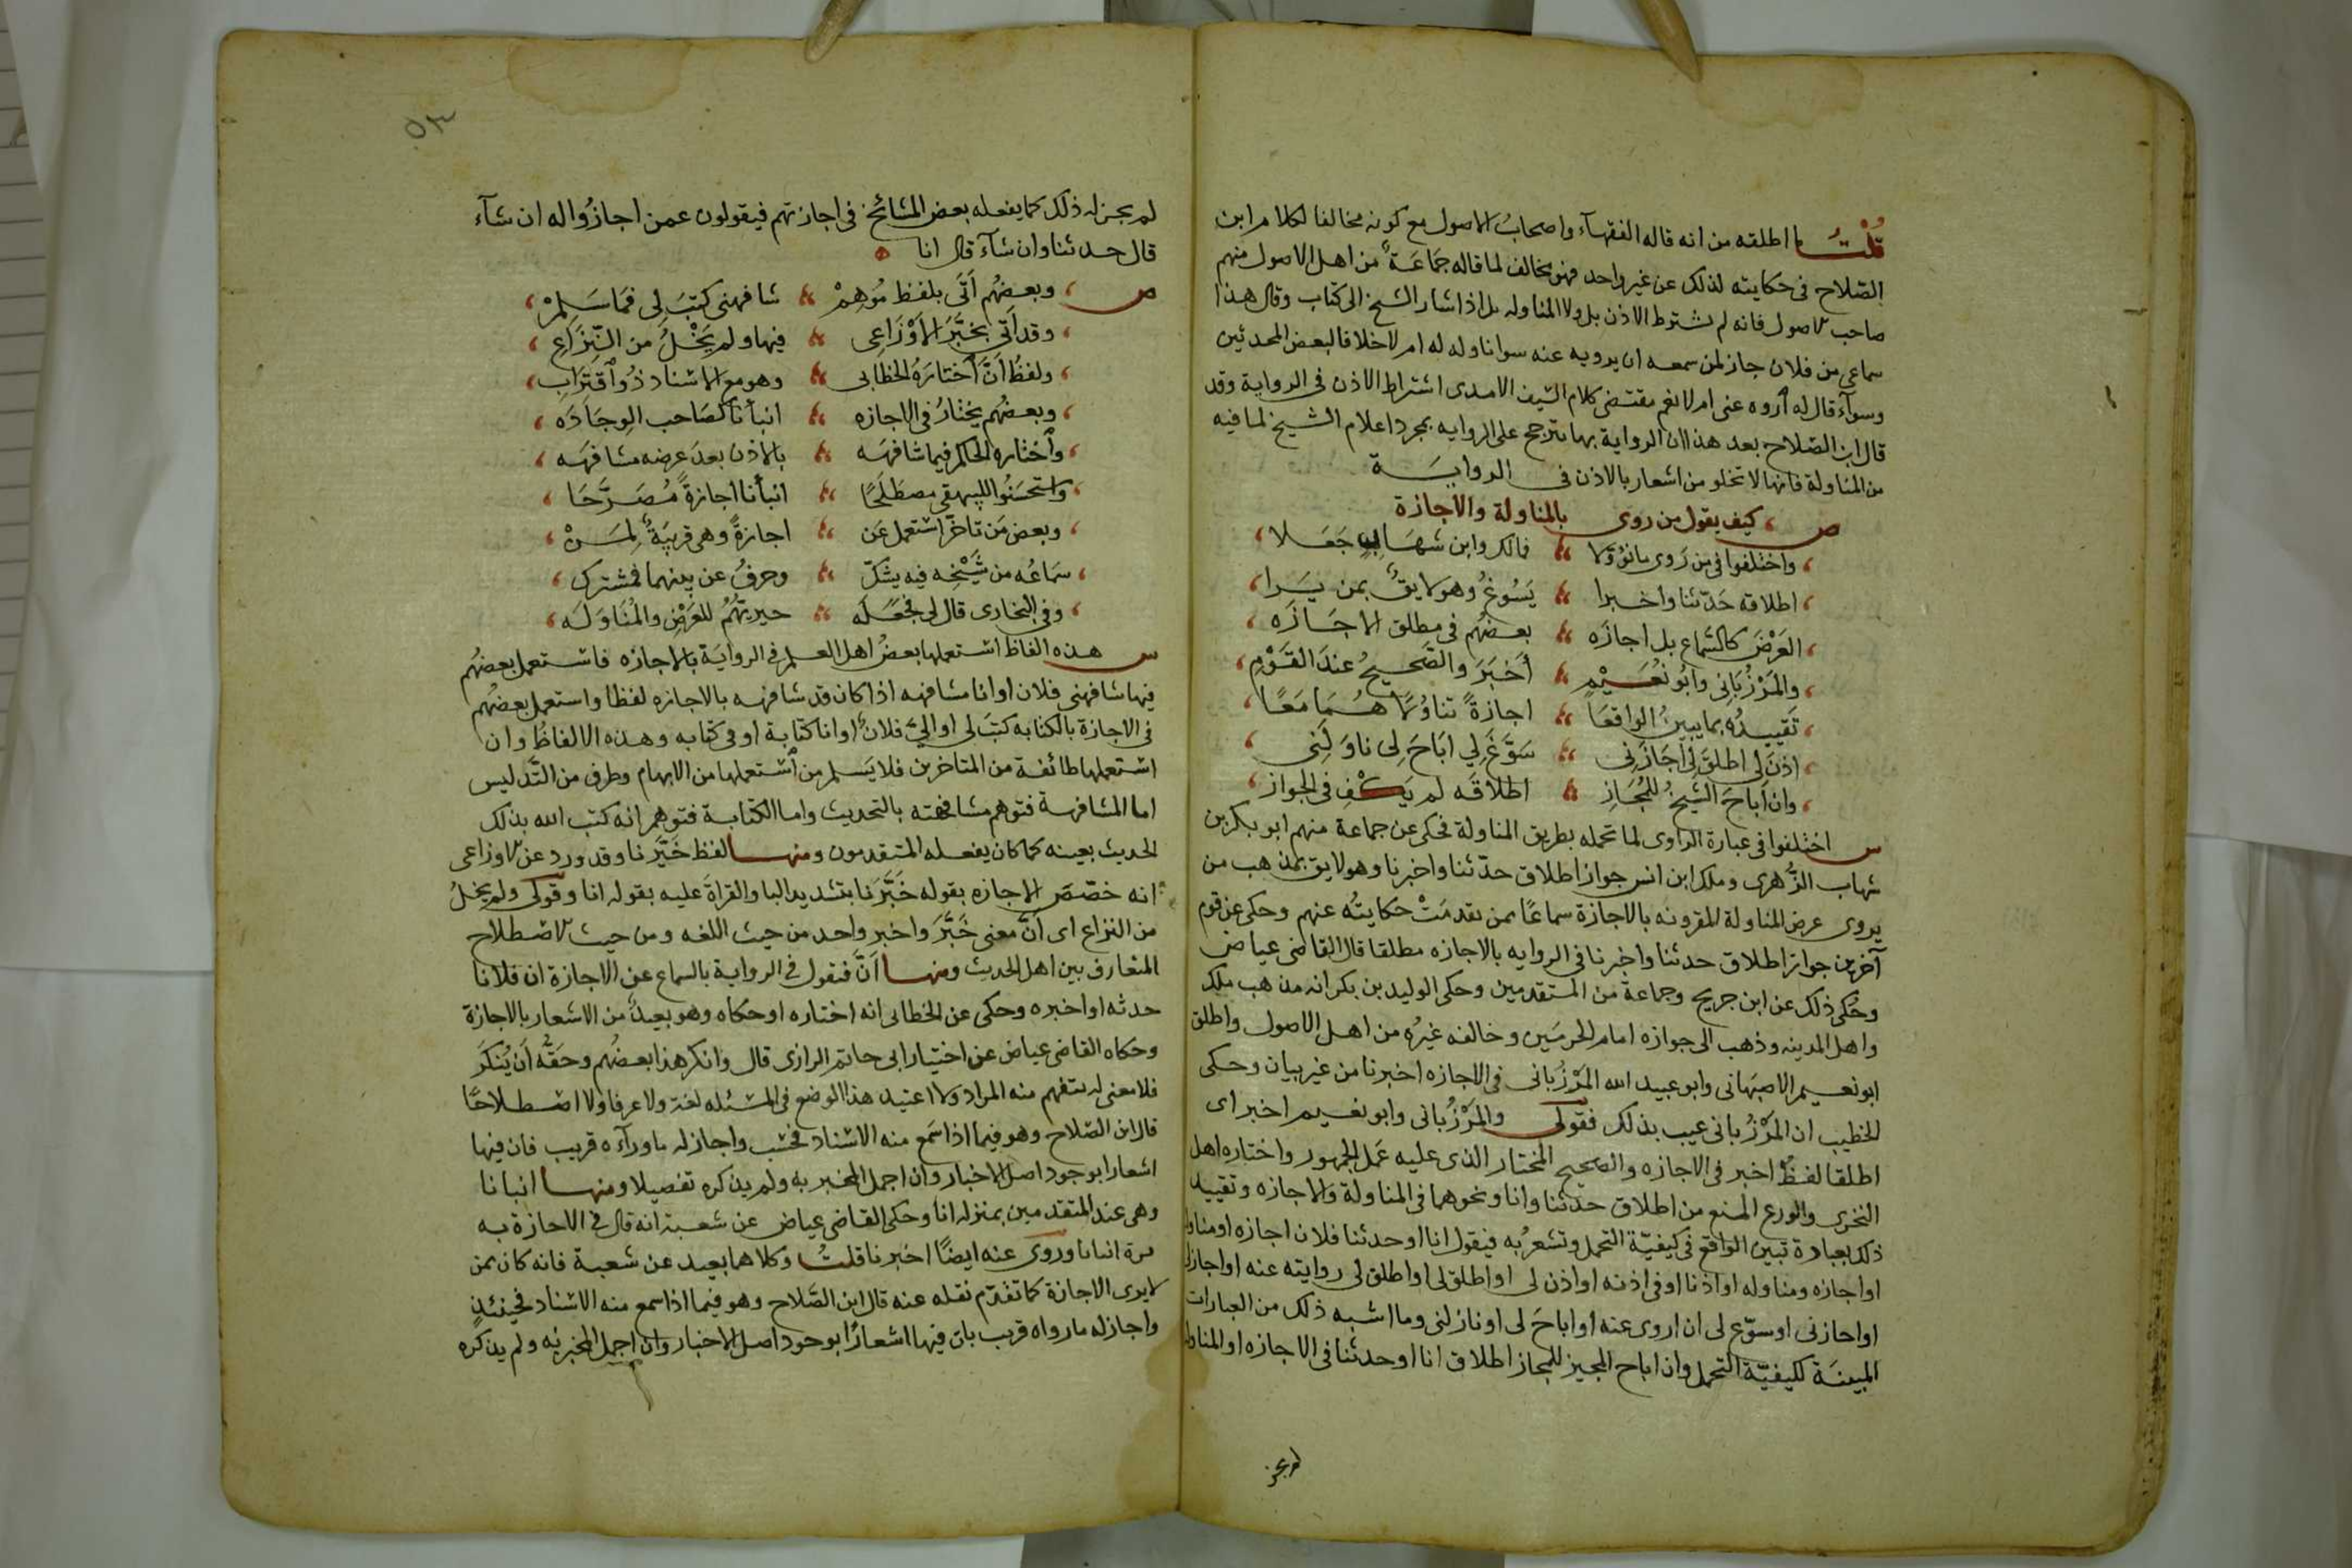 قُلْتُ ما اطلقه من انه قاله الفقهآء واصحابُ الاصول مع كونه مخالفا لكلام ابن
الصّلاح فى حكايته لذلك عن غير واحد فهو مخالف لما قاله جَمَاعَة من اهل الاصول منهم
صاحب الاصول فانه لم يشترط الاذن بل ولا المناوله بل اذا اشار الشيخ الى كتاب وقال هذا
سماعى من فلان جاز لمن سمعه ان يرويه عنه سوا ناوله له ام لا خلافا لبعض المحدثين
وسوآء قال له اَروه عنى ام لا نعم مقتضى كلام السّيف الامدى اشتراط الاذن فى الرواية وقد
قال ابن الصّلاح بعد هذا ان الرواية بها تترجح على الروايه بمجرد اعلام الشيخ لما فيه
من المناولة فانها لا تخلو من اشعار بالاذن فى الروايَة
ص ، كيف يقول من روى بالمناولة والاجازة
، واختلفوا فى من رَوى مانُوْوَلا فمالك وابن شهَابٍ جَعَلا ،
، اطلاقه حَدّثنا واخبرا يَسُوغُ وهو لايقٌ بمن يَرا ،
، العَرْضَ كالسَّماع بل اجازَه بعضُهم فى مطلق الاجَازَه ،
، والمَرْزُبَانى وابُو نُعَيْمٍ اَخبَرَ والصَّحيحُ عندَ القَوْمِ ،
، تَقييدُه بما يبينُ الواقعَا اجازةً تناوُلاً هُمَا مَعًا ،
، اَذنَ لى اطلَقَ لى اَجَازَنِى سَوَّغَ لِي ابَاحَ لِى ناوَلَنِى ،
، وان اَباحَ الشَيخُ للمُجَازِ اطلاقَه لم يَكْفِ فى الجواز ،
س اختلفوا فى عبارة الراوى لما تحمله بطريق المناولة فحكى عن جماعة منهم ابو بكر بن
شهاب الزُّهرى وملك ابن انس جواز اطلاق حدّثنا واخبرنا وهو لايق بمذهب من
يروى عرض المناولة المقرونه بالاجازة سماعًا ممن تقدمَتْ حكايتُه عنهم وحكى عن قوم
آخرين جواز اطلاق حدثنا واخبرنا فى الروايه بالاجازه مطلقا قال القاضى عياض
وحُكى ذلك عن ابن جريج وجماعة من المتقدمين وحكى الوليد بن بكر انه مذهب ملك
واهل المدينه وذهب الى جوازه امام الحرمَين وخالفه غيرُه من اهل الاصول واطلق
ابو نعيم الاصبَهانى وابو عبيد الله المَرْزُبانى فى الاجازه اخبرنا من غير بيان وحكى
الخطيب ان المَرْزُبانى عيب بذلك فقولى والمَرْزُبانى وابو نعيم اخبر اى
اطلقا لفظَ اخبر فى الاجازه والصحيح المختار الذى عليه عَمَل الجمهور واختاره اهل
التحرى والورع المنع من اطلاق حدثنا وانا ونحوهما فى المناولة والاجازه وتقييد
ذلك بعبارة تبين الواقع فى كيفيّة التحمل وتشعرُ به فيقول انا او حدثنا فلان اجازه او مناولة
او اجازه ومناوله او اذنا او فى اذنه او اذن لى او اطلق لى او اطلق لى روايته عنه او اجازلى
او اجازنى او سوّغ لى ان اروى عنه او اباحَ لى او ناولنى وما اشبه ذلك من العبارات
المبينَة لكيفيّة التحمل وان اباح المجيز للمجاز اطلاق انا او حدثنا فى الاجازه او المناولة
لم يجز
٥٣
لم يجز له ذلك كما يفعله بعض المشائخ فى اجازتهم فيقولون عمن اجازُوا له ان شآء
قال حدثنا وان شآء قال انا
ص ، وبعضُهم اَتَى بلفظ مُوهِمْ شافهنى كتبَ لى فمَا سَلِمْ ،
، وقد اَتى بخَبَّرَ الاَوْزَاعِى فيها ولم يَخْلُ من النِّزَاعِ ،
، ولفظُ اَنَّ اختارَهُ الخطابى وهو مع الاسناد ذُو اقْتِرَابِ ،
، وبعضُهم يختارُ فى الاجازه انبأنا لصَاحب الوِجَادَه ،
، واَختاره الحاكم فيما شافهَه بالاذن بعدَ عرضه مشافهَه ،
، واستحسَنُوا للبيهقى مصطَلَحًا انبأنا اجازةً مُصَرَّحَا ،
، وبعض مَن تاخرّ استعمل عَن اجازةً وهى قريبَةٌ لِمَنْ ،
، سَمَاعُه من شَيْخِه فيه يشكّ وحرفُ عن بينهما فمشترك ،
، وفى البخارى قال لى فجعَلَه حيريّهُمْ للعَرْضِ والمُنَاوَلَه ،
س هذه الفاظ استعملها بعضُ اهل العلم فى الروايَة بالاجازه فاستعمل بعضهُم
فيها شافهنى فلان او انا مشافهه اذا كان قد شافهه بالاجازه لفظا واستعمل بعضهُم
فى الاجازة بالكتابه كتبَ لى او الىَّ فلانٌ او انا كتابة او فى كتابه وهذه الالفاظُ وان
استعملها طائفة من المتاخرين فلا يَسلم من اَستعملها من الابهام وطرف من التَّدليس
اما المشافهة فتوهم مشافهته بالتحديث واما الكتابة فتوهم انه كتب اليه بذلك
الحديث بعينه كما كان يفعله المتقدمون ومنها لفظ خَبَّرنا وقد ورد عن الاوزاعى
انه خصّصَ الاجازه بقوله خَبَّرَنا بتشديد البا والقراةَ عليه بقوله انا وقولى ولم يخلُ
من النزاع اى اَنَّ معنى خَبَّرَ واخبر واحد من حيث اللغه ومن حيث الاصطلاح
المتعارف بين اهل الحديث ومنها اَنَّ فنقول فى الرواية بالسماع عن الاجازة ان فلانا
حدثه او اخبره وحكى عن الخطابى انه اختاره او حكاه وهو بعيدٌ من الاشعار بالاجازة
وحكاه القاضى عياض عن اختيار ابى حاتم الرازى قال وانكر هذا بعضُهم وحَقُّه اَن يُنكَرَ
فلا معنى له يتفهم منه المراد ولا اعتيد هذا الوضع فى المسئله لغة ولا عرفا ولا اصطلاحًا
قال ابن الصّلاح وهو فيما اذا سَمع منه الاسناد فحسْب واجاز له ماورآءه قريب فان فيها
اشعارا بوجود اصل الاخبار وان اجمل المخبر به ولم يذكره تفصيلا ومنها انبانا
وهى عند المتقدمين بمنزلة انا وحكى القاضى عياض عن شعبة انه قال فى الاجازة به
مرة انبانا وروى عنه ايضًا اخبرنا قلتُ وكلاهما بعيد عن شعبة فانه كان ممن
لا يرى الاجازة كما تقدّم نقله عنه قال ابن الصَّلاح وهو فيما اذا سمع منه الاسناد فحينئذٍ
واجاز له ما رواه قريب بان فيها اشعارًا بوجود اصل الاخبار وان اجمل المخبر به ولم يذكره